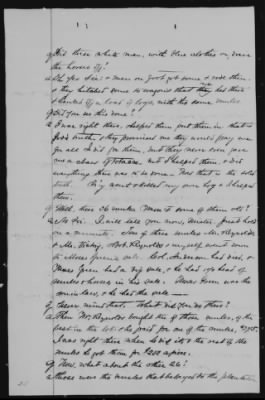 Q Did these white men, with blue clothes on, drive the horses off?
A Oh yes sir: & men on foot got some & rode them. & they hitched some to wagons that they had there & hauled off a load of logs, with the same mules.
Q Did you see this done?
A I was right there, & helped them put them in that is God's truth, & they promised me they would pay me for all I did for them, but they never even gave me a chaw of tobacco. But I helped them, & did everything there was to be done. Now that is the solid truth. They went & killed my own hog & I helped them.
Q Well, these 26 mules
to some of them all?
A No Sir. I will tell you now, Mister. Just hold on a minute. Two of these mules Mr. Reynolds & Mr.
Bob Reynolds & myself went down to Moses Green's sale. Col. Anderson had died, & Moses Green had a big sale, & he had 150 head of mules & horses in his sale. Moses Green was the son in law, & he had the sale
Q Never mind that. What did you do there?
A Then Mr. Reynolds bought two of those mules, of the best in the lot & he paid for one of the mules,
I was right there when he bid it & the rest of the mules he got them for $250 apiece.
Q Now, what about the other 26?
A Those were the mules that belonged to the plantation